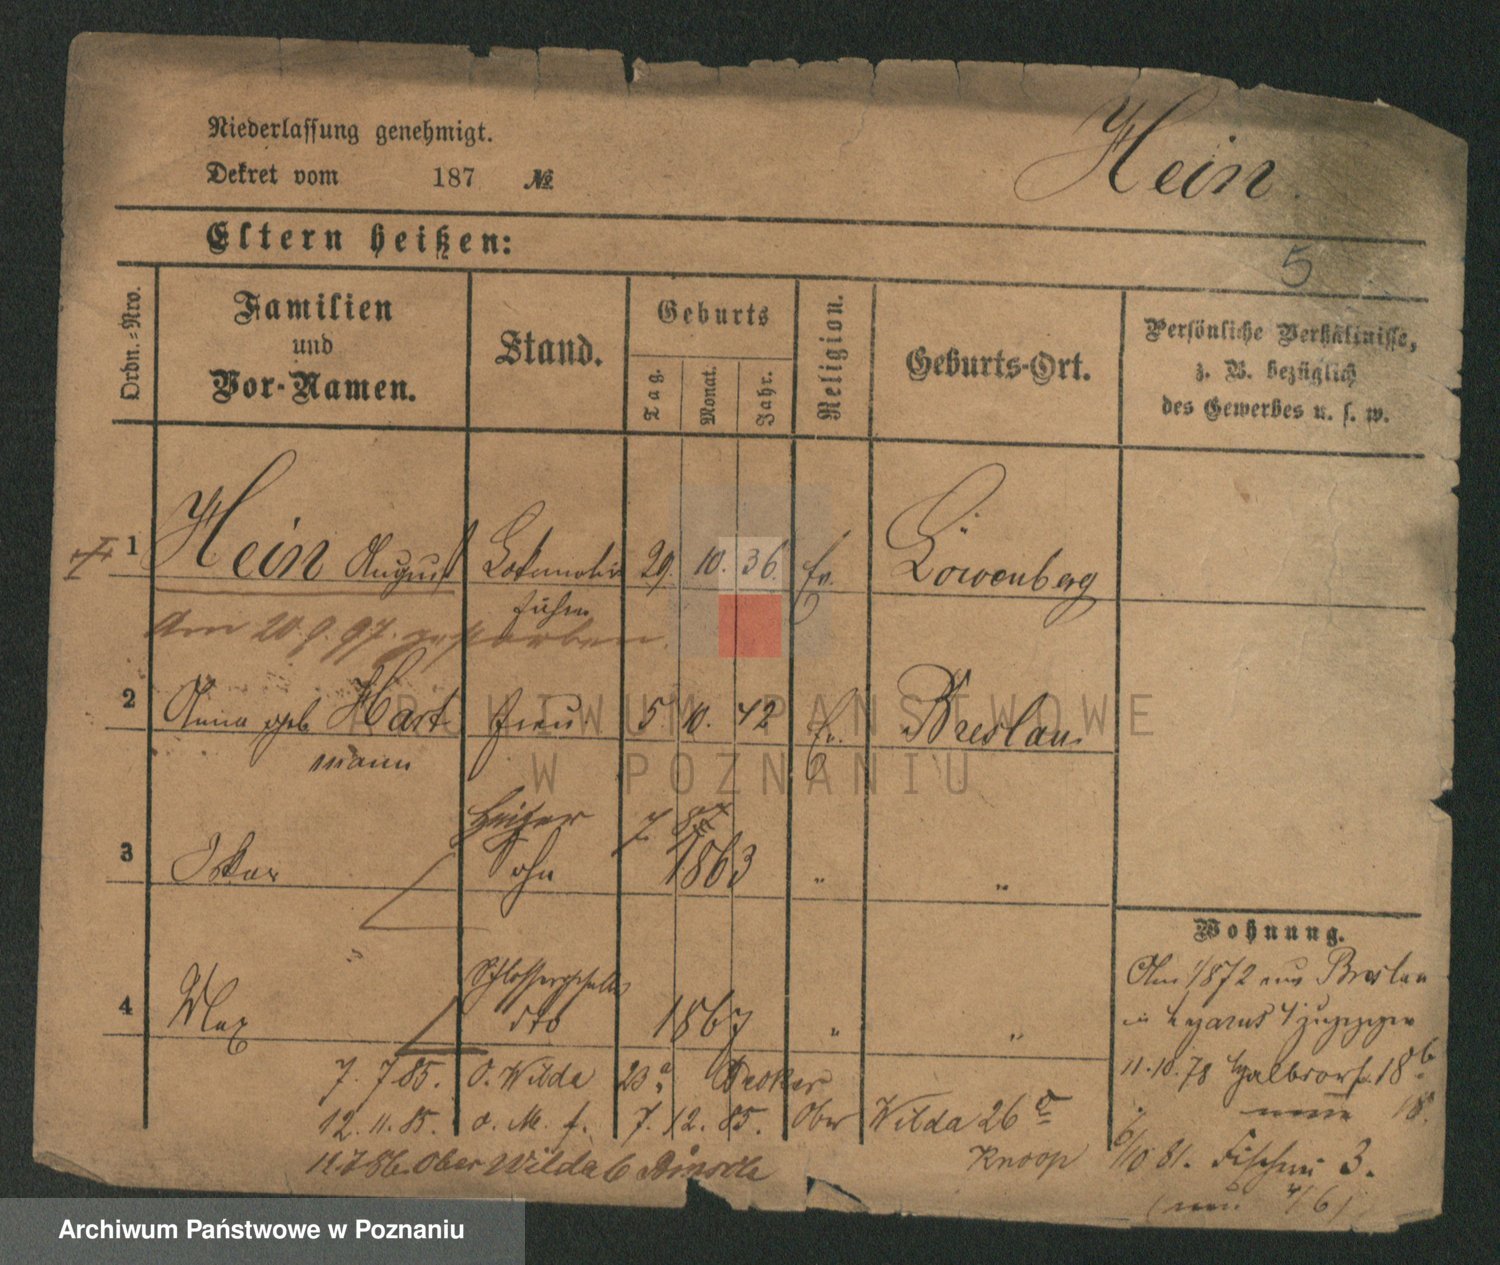 Niederlassung genehmigt.
Dekret vom 187 №
Hein.
Eltern heißen:
5
Ordn.-Nro.
Familien
und
Vor-Namen.
Stand.
Geburts
Tag.
Monat.
Jahr.
Religion.
Geburts-Ort.
Persönliche Verhältnisse,
z. B. bezüglich
des Gewerbes u. s. w.
1 Hein August Lokomotiv 29. 10. 36. ev. Löwenberg
führer
Am 20.9.97. gestorben.
2 Anna geb. Hart Frau 5. 10. 42 ev. Breslau
mann
Heizer 7.
3 Oskar Sohn 1863 " "
Schlossergeselle
4 Max dto 1867 " "
Wohnung.
1872 aus Breslau
in
11.10.78 Halbdorfstr. 18
7. 7 85. O. Wilda 23 Decker
12. 11. 85. o. M. f. 7. 12. 85. Ober Wilda 26
Knoop
6/10 81. Fischerei 3.
(neu 4/6)
11.7 86. Ober Wilda 6
ARCHIWUM PAŃSTWOWE
W POZNANIU
Archiwum Państwowe w Poznaniu